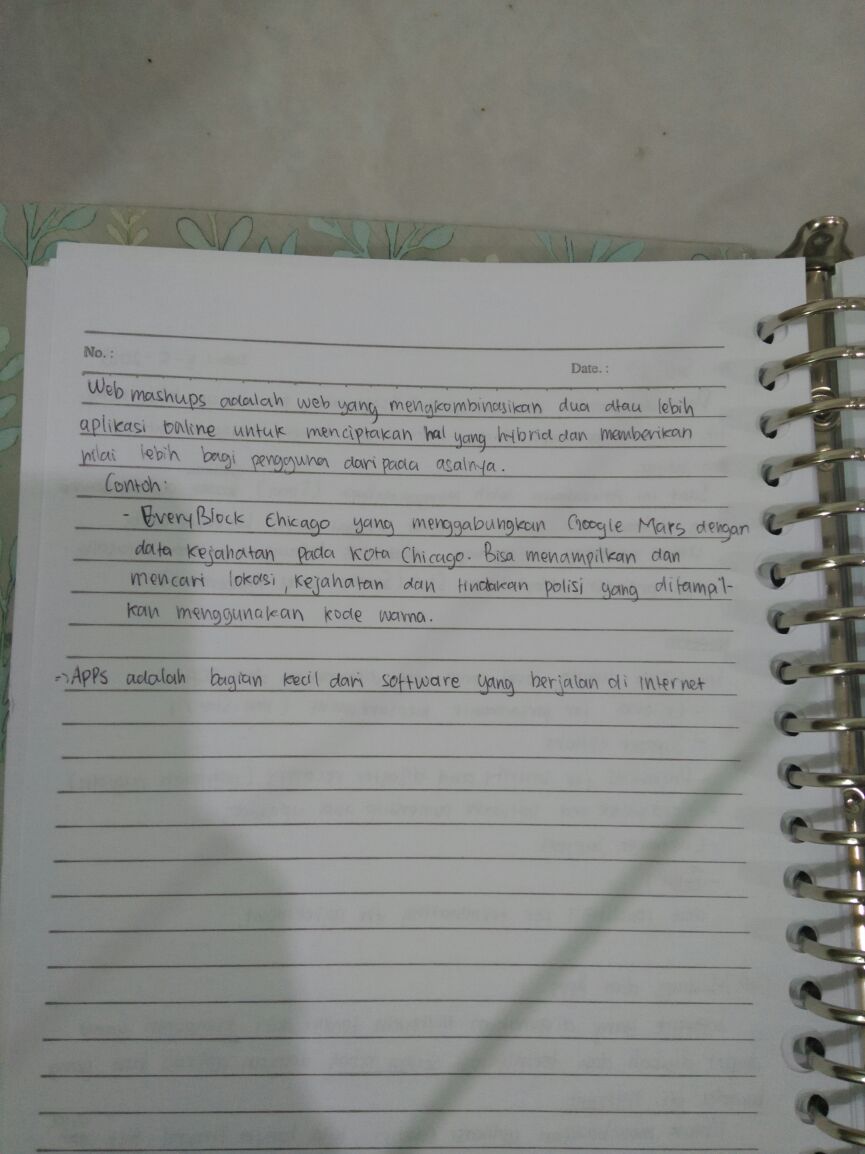 No. :
Date. :
Web mashups adalah web yang mengkombinasikan dua atau lebih
aplikasi online untuk menciptakan hal yang hybrid dan memberikan
nilai lebih bagi pengguna daripada asalnya.
Contoh:
- EveryBlock Chicago yang menggabungkan Google Mars dengan
data kejahatan pada kota Chicago. Bisa menampilkan dan
mencari lokasi, kejahatan dan tindakan polisi yang ditampil-
kan menggunakan kode warna.
=> Apps adalah bagian kecil dari software yang berjalan di internet